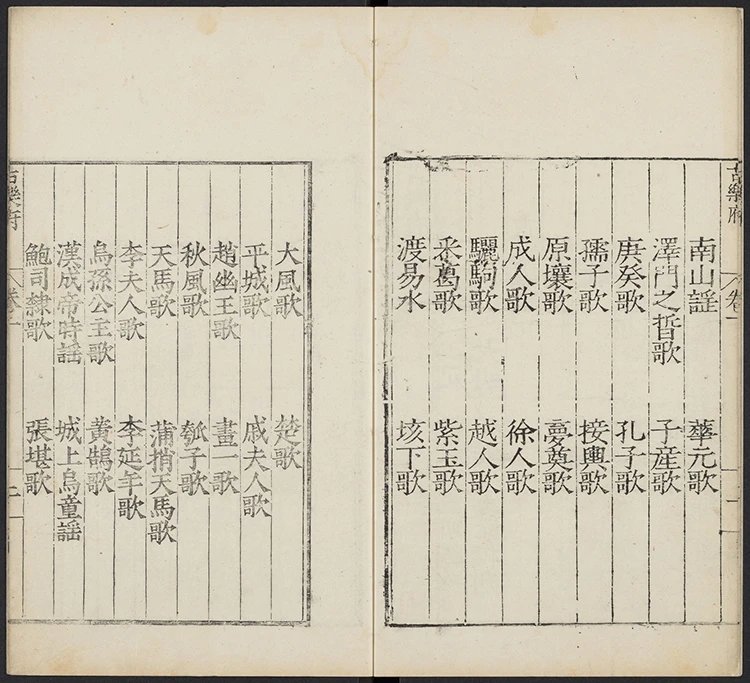 古樂府
卷一
南山謡 華元歌
澤門之晳歌 子産歌
庚癸歌 孔子歌
孺子歌 接輿歌
原壤歌 夢奠歌
成人歌 徐人歌
驪駒歌 越人歌
釆葛歌 紫玉歌
渡易水 垓下歌
大風歌 楚歌
平城歌 戚夫人歌
趙幽王歌 畫一歌
秋風歌 瓠子歌
天馬歌 蒲捎天馬歌
李夫人歌 李延年歌
烏孫公主歌 黃鵠歌
漢成帝時謡 城上烏童謡
鮑司隸歌 張堪歌
古樂府
卷一